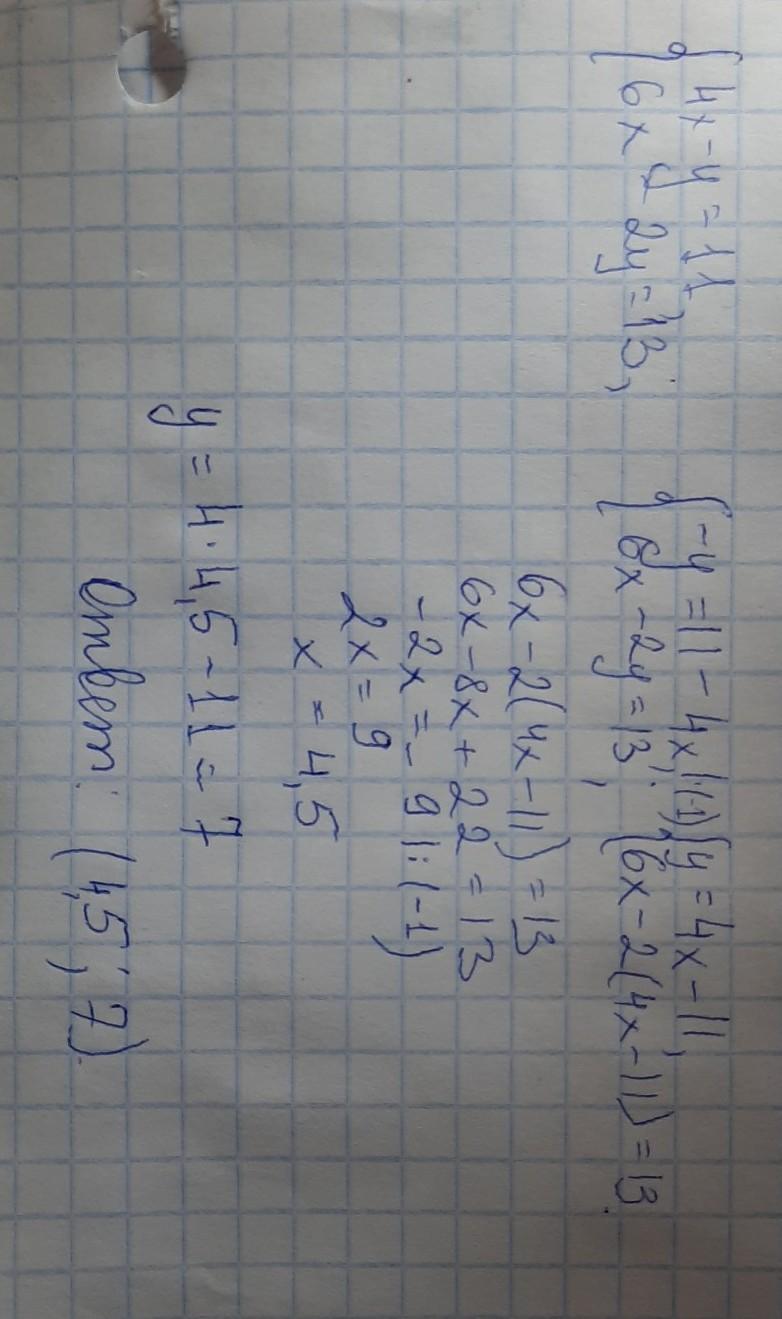 { 4x - y = 11, { -y = 11 - 4x |:(-1), { y = 4x - 11,
6x - 2y = 13, 6x - 2y = 13, 6x - 2(4x - 11) = 13.
6x - 2(4x - 11) = 13
6x - 8x + 22 = 13
-2x = -9 |:(-1)
2x = 9
x = 4,5
y = 4·4,5 - 11 = 7
Ответ: (4,5; 7).